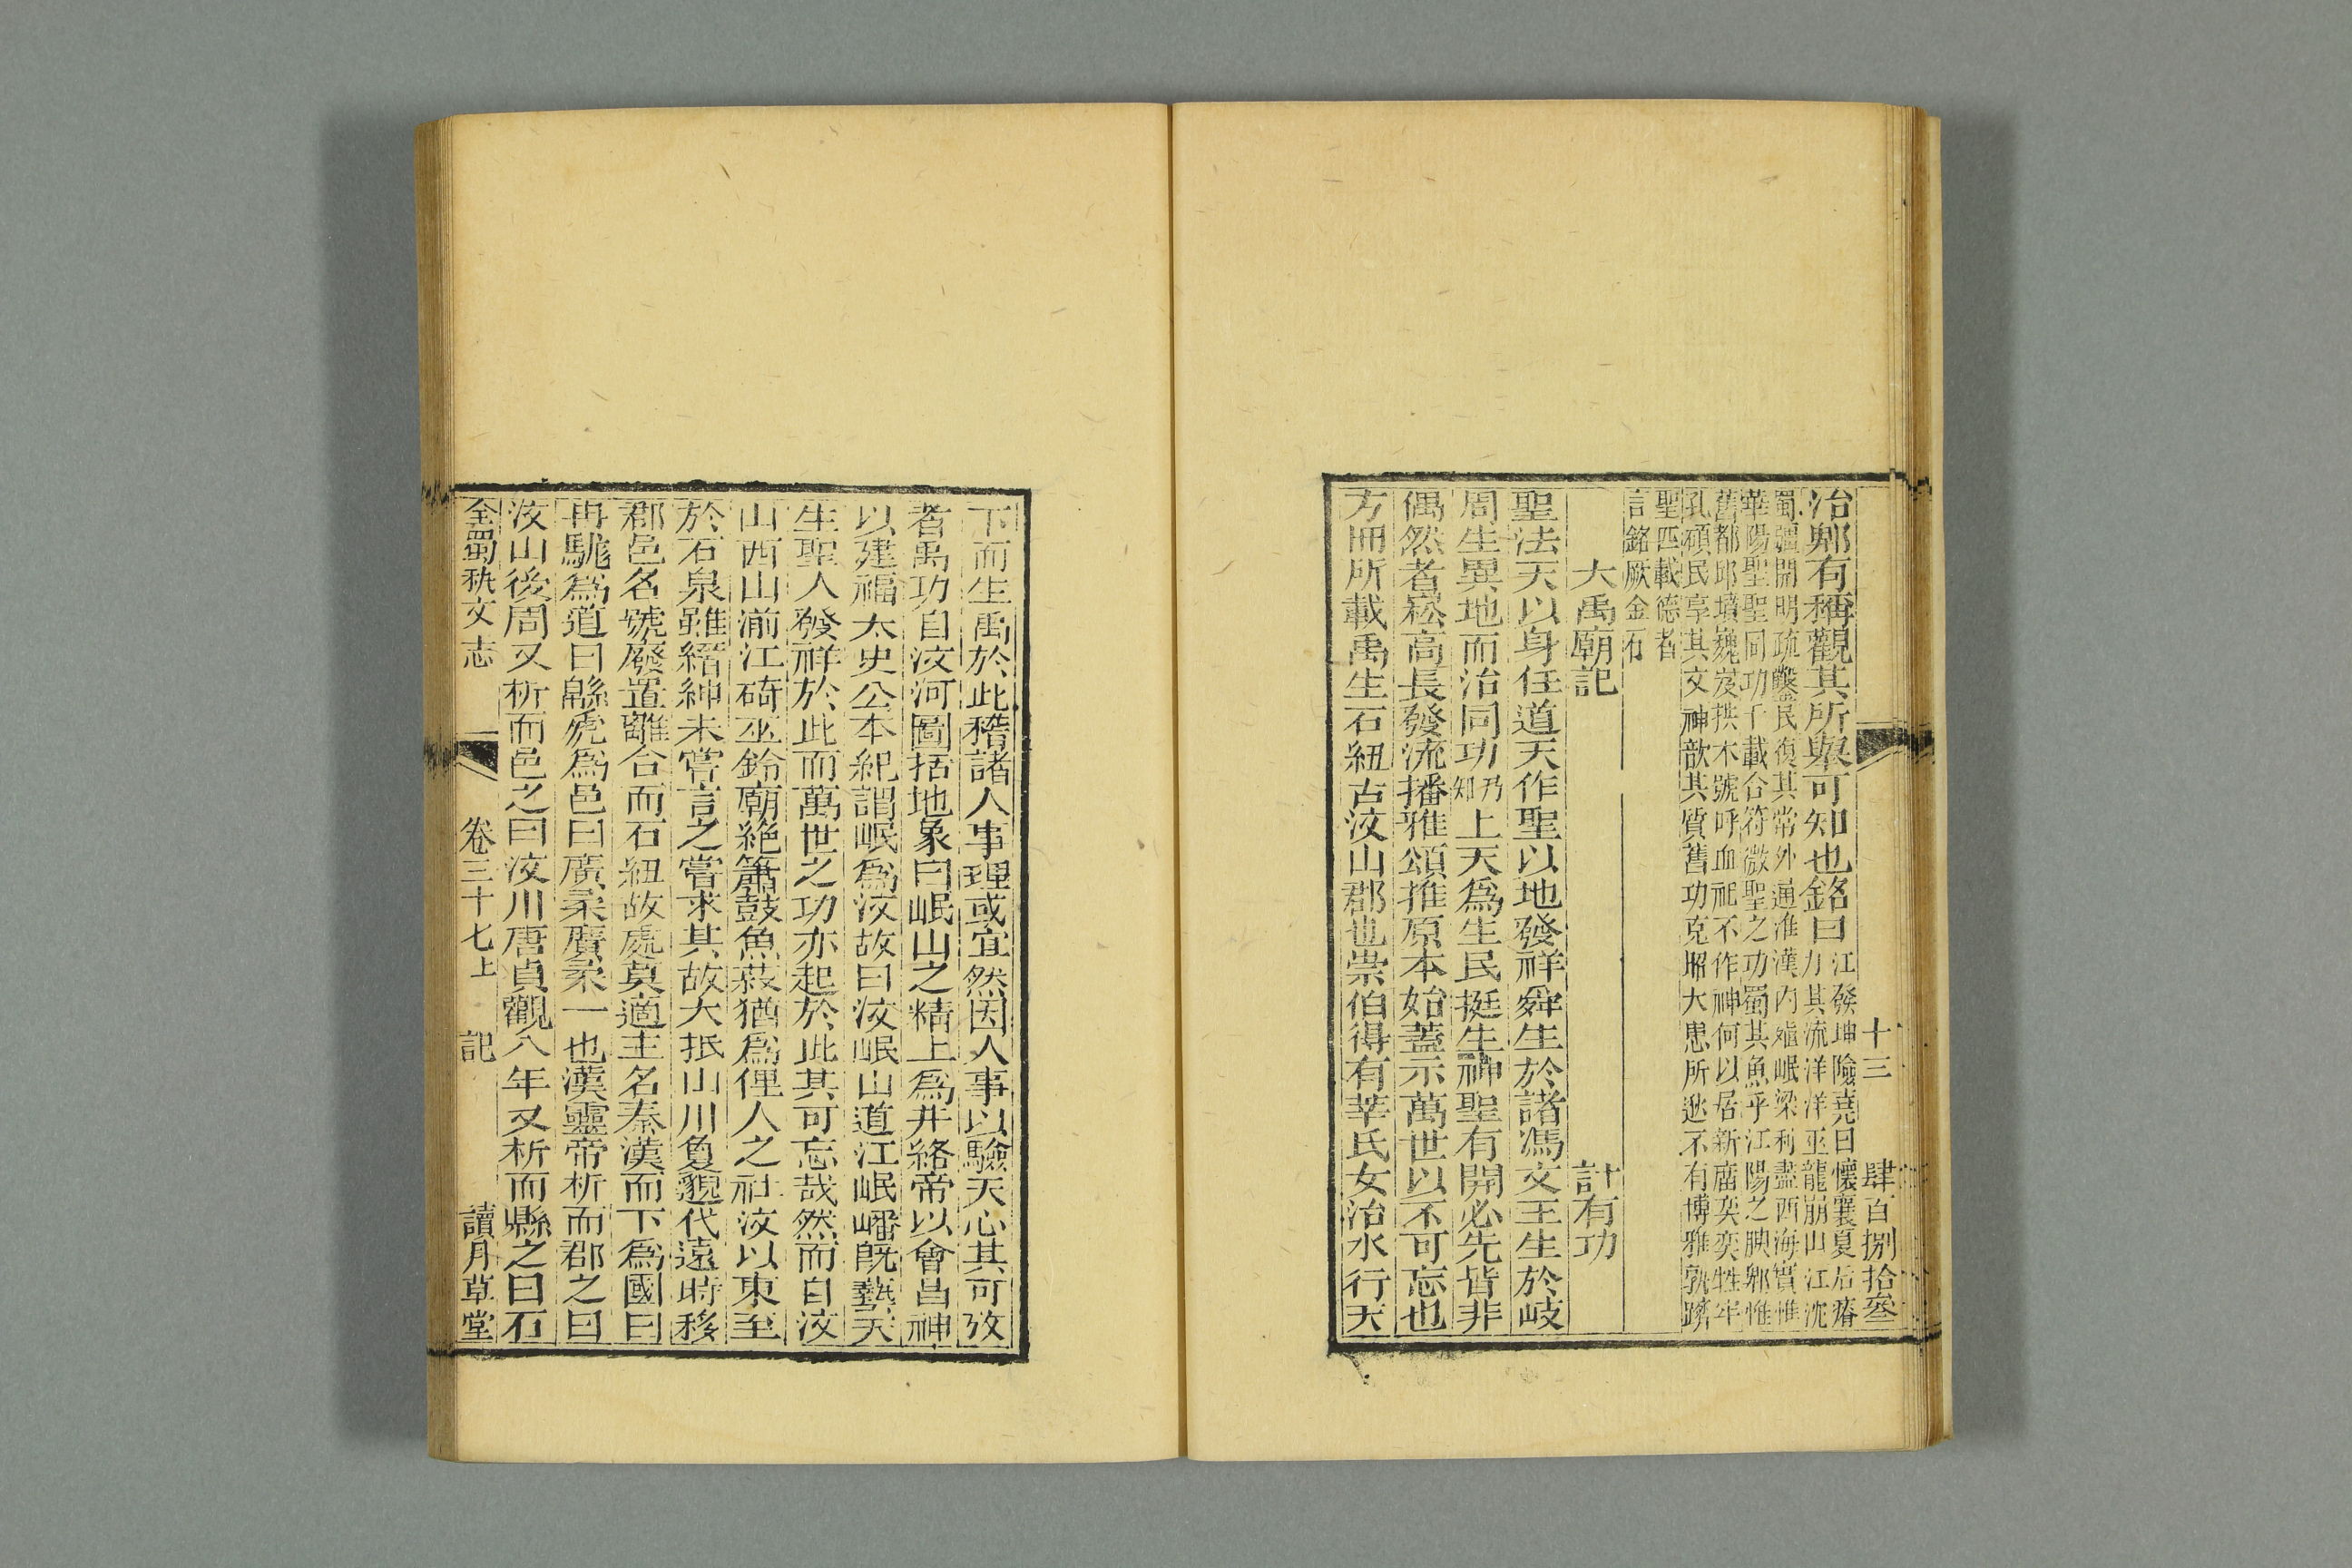 十三 肆百捌拾叁
治郫有稱觀其所與可知也銘曰
江發坤險堯曰懷襄夏后瘠
力其流洋洋巫龍崩山江沈
蜀疆開明疏鑿民復其常外通淮漢內
岷梁利盡西海實惟
華陽聖聖同功千載合符微聖之功蜀其魚乎江陽之腴郫惟
舊都邱墳巍岌拱木號呼血祀不作神何以居新廟奕奕牲牢
孔碩民享其文神歆其質舊功克昭大患所逖不有博雅孰躋
聖匹載德者
言銘厥金石
大禹廟記 計有功
聖法天以身任道天作聖以地發祥舜生於諸馮文王生於岐
周生異地而治同功乃知上天爲生民挺生神聖有開必先皆非
偶然者崧高長發流播雅頌推原本始蓋示萬世以不可忘也
方冊所載禹生石紐古汶山郡也崇伯得有莘氏女治水行天
下而生禹於此稽諸人事理或宜然因人事以驗天心其可攷
者禹功自汶河圖括地象曰岷山之精上爲井絡帝以會昌神
以建福太史公本紀謂岷爲汶故曰汶岷山道江岷嶓旣藝天
生聖人發祥於此而萬世之功亦起於此其可忘哉然而自汶
山西山湔江碕巫鈴廟絶簫鼓魚菽猶爲俚人之社汶以東至
於石泉雖縉紳未嘗言之嘗求其故大抵山川敻邈代遠時移
郡邑名號廢置離合而石紐故處莫適主名秦漢而下爲國曰
冉駹爲道曰緜虒爲邑曰廣柔廣柔一也漢靈帝析而郡之曰
汶山後周又析而邑之曰汶川唐貞觀八年又析而縣之曰石
全蜀秇文志 卷三十七上 記 讀月草堂